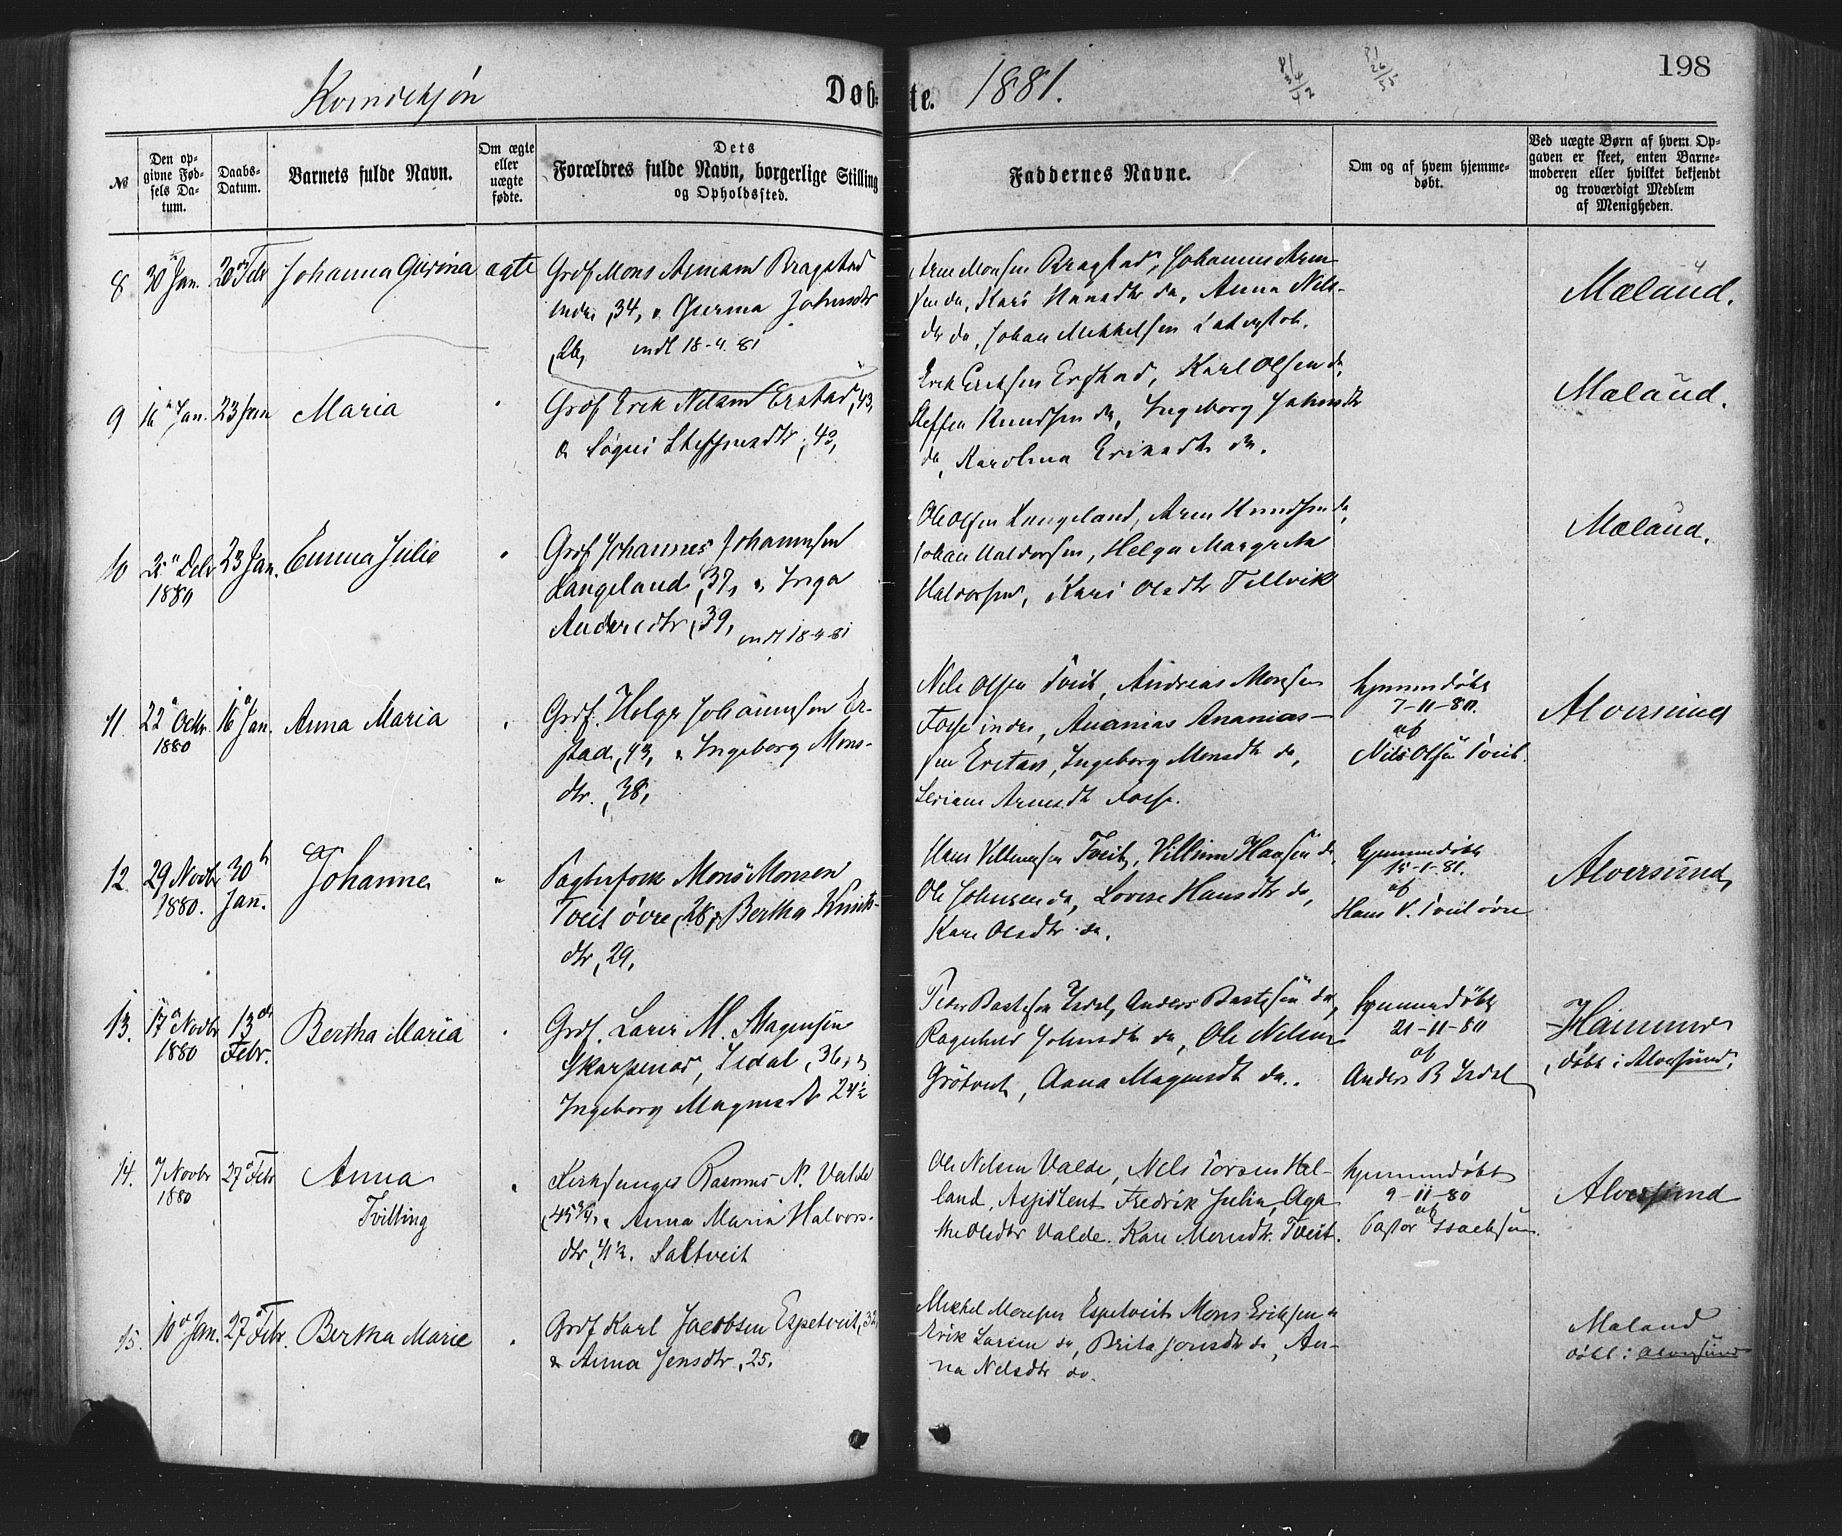 Kvindekjøn
Døbte. 1881.
198
№
Den opgivne Fødsels Datum.
Daabs-Datum.
Barnets fulde Navn.
Om ægte eller uægte fødte.
Dets Forældres fulde Navn, borgerlige Stilling og Opholdssted.
Faddernes Navne.
Om og af hvem hjemmedøbt.
Ved uægte Børn af hvem Opgaven er skeet, enten Barnemoderen eller hvilket bekjendt og troværdigt Medlem af Menigheden.
8 30 Jan. 20 Febr Johanna Gurina ægte
Grdf Mons Bragstad
indre, 34, Johnsdtr
26, indt 18-4-81
Arne Monsen Bragstad, Johannes Arne-
sen do, Kari do, Anna Nils-
dtr do, Johan Mikkelsen
Mæland.
9 16 Jan. 23 Jan Maria "
Grdf Erik Nilsen Erstad, 43,
& Steffensdtr, 43,
Erik Eriksen Erstad, Karl Olsen do,
Steffen Knudsen do, Ingeborg Johnsdtr
do, Karolina Eriksdtr do.
Mæland.
10 Debr 1880 23 Jan. Emma Julie "
Grdf Johannes Johannesen
Langeland, 37, & Inga
Andersdtr, 39, indt 18-4-81
Ole Olsen Langeland, Arne Knudsen do,
Johan Haldorsen, Helga Margreta
Haldorsen, Kari Olsdtr Tellvik
Mæland.
11. 22 Octbr. 1880 16 Jan. Anna Maria "
Grdf. Helge Johannesen Er-
stad, 43, & Ingeborg Mons-
dtr., 38,
Nils Olsen Tveit, Andreas Monsen
Fosse indre, Ananias Ananias-
sen Erstad, Ingeborg Monsdtr do,
Arnesdtr Fosse.
hjemmedøbt
7-11-80.
af
Nils Olsen Tveit.
Alversund
12. 29 Novbr 1880. 30 Jan. Johanne "
Pagterfolk Mons Monsen
Tveit øvre, 28, Bertha Knuts-
dtr, 29,
Hans Villumsen Tveit, Villum Hansen do,
Ole Johnsen do, Lovise Hansdtr do,
Kari Olsdtr do.
hjemmedøbt
15-1-81.
af
Hans V. Tveit øvre
Alversund
13. 17 Novbr 1880 13 Febr. Bertha Maria "
Grdf. Lars M. Magnesen
Isdal, 36, &
Ingeborg Magnesdtr 24½
Peder Bastesen Isdal, Anders Bastesen do,
Ragnhild Johnsdtr do, Ole Nilsen
Anna Magnesdtr do.
hjemmedøbt
21-11-80
af
Anders B Isdal
Hammer
, døbt i Alversund.
14. 7 Novbr 1880 27 Febr Anna "
Tvilling
Kirkesanger Rasmus N. Valde
45¾, & Anna Maria Halvors-
dtr, 41½. Saltveit
Ole Nilsen Valde, Nils Torsen Hel-
land, Assistent Fredrik Julin, Aga-
the Olsdtr Valde. Kari Monsdtr. Tveit.
hjemmedøbt
9-11-80
af
Pastor Isachsen
Alversund
15. 10 Jan. 27 Febr. Bertha Marie "
Grdf Karl Jacobsen Espetveit, 32
& Anna Jensdtr, 25.
Mikkel Monsen Espetveit Mons Eriksen "
Erik Larsen do, Brita Jonsdtr do, An-
na Nilsdtr do.
Mæland
døbt i Alversund